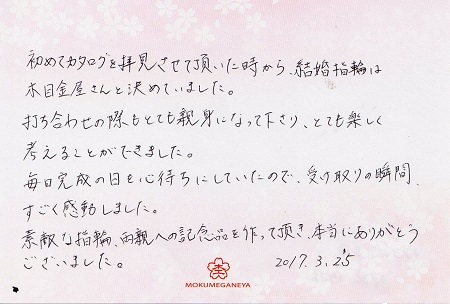 初めてカタログを拝見させて頂いた時から、結婚指輪は
木目金屋さんと決めていました。
打ち合わせの際もとても親身になって下さり、とても楽しく
考えることができました。
毎日完成の日を心待ちにしていたので、受け取りの瞬間、
すごく感動しました。
素敵な指輪、両親への記念品を作って頂き、本当にありがとう
ございました。
2017.3.25
MOKUMEGANEYA